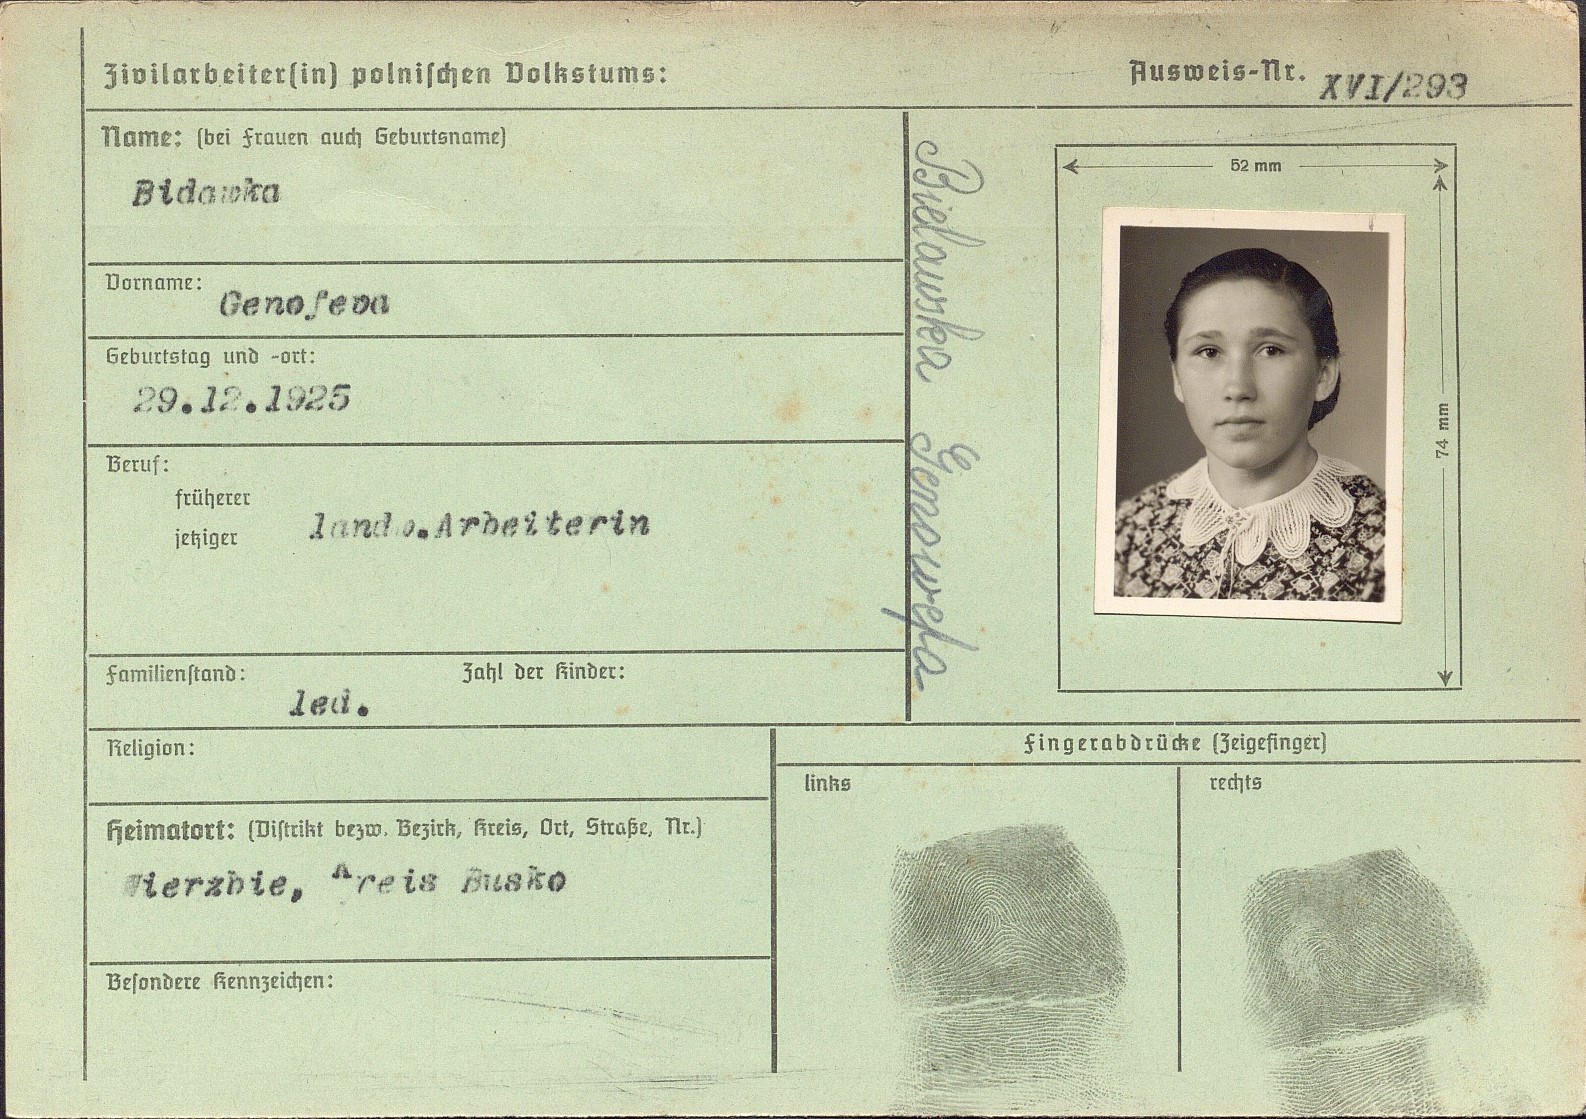 Zivilarbeiter(in) polnischen Volkstums:
Ausweis-Nr. XVI/293
Name: (bei Frauen auch Geburtsname)
Bidawka
Vorname: Genofeva
Geburtstag und -ort:
29.12.1925
Beruf:
früherer
jetziger
landw.Arbeiterin
Familienstand: led.
Zahl der Kinder:
Religion:
Heimatort: (Distrikt bezw. Bezirk, Kreis, Ort, Straße, Nr.)
Wierzbie, Kreis Busko
Besondere Kennzeichen:
Bielawska Genowefa
52 mm
74 mm
Fingerabdrücke (Zeigefinger)
links
rechts